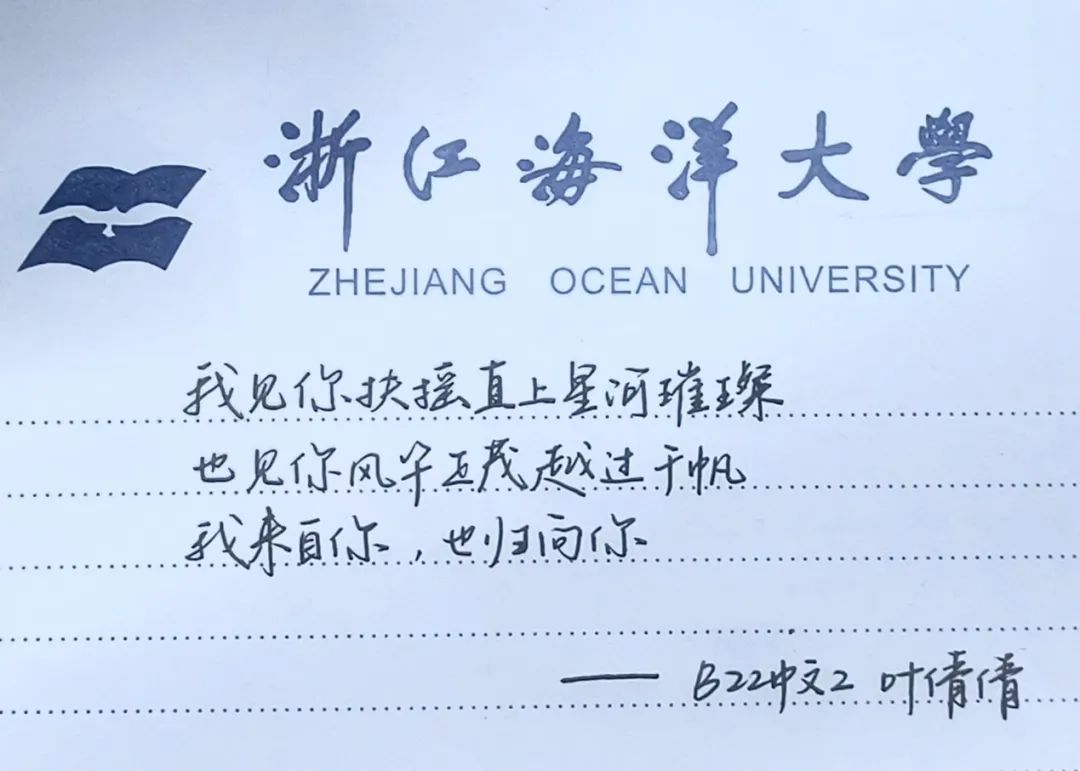 浙江海洋大學
ZHEJIANG OCEAN UNIVERSITY
我见你扶摇直上星河璀璨
也见你风华正茂越过千帆
我来自你，也归向你
—— B22中文2 叶倩倩